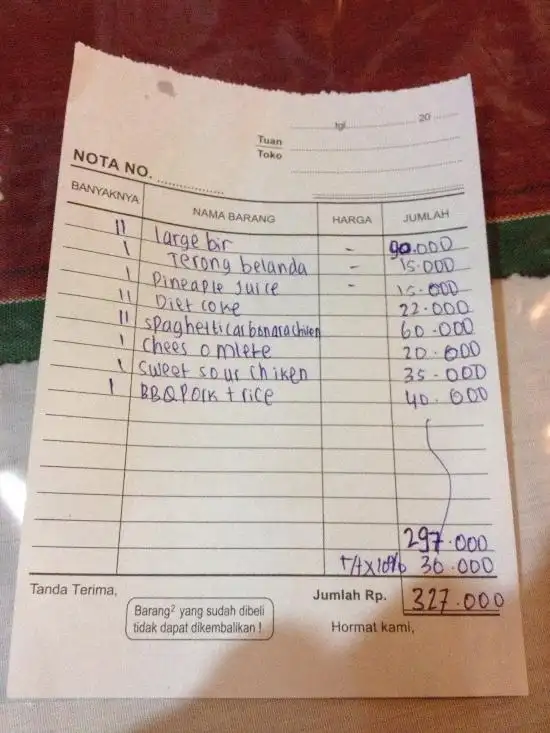 tgl. 20
Tuan
Toko
NOTA NO.
BANYAKNYA NAMA BARANG HARGA JUMLAH
II large bir - 90.000
I Terong belanda - 15.000
I Pineaple Juice - 15.000
II Diet coke 22.000
II spaghetti carbonara chiken 60.000
I chees omlete 20.000
I sweet sour chiken 35.000
I BBQ Pork + rice 40.000
297.000
TAX 10% 30.000
Tanda Terima, Jumlah Rp. 327.000
Barang² yang sudah dibeli
tidak dapat dikembalikan !
Hormat kami,